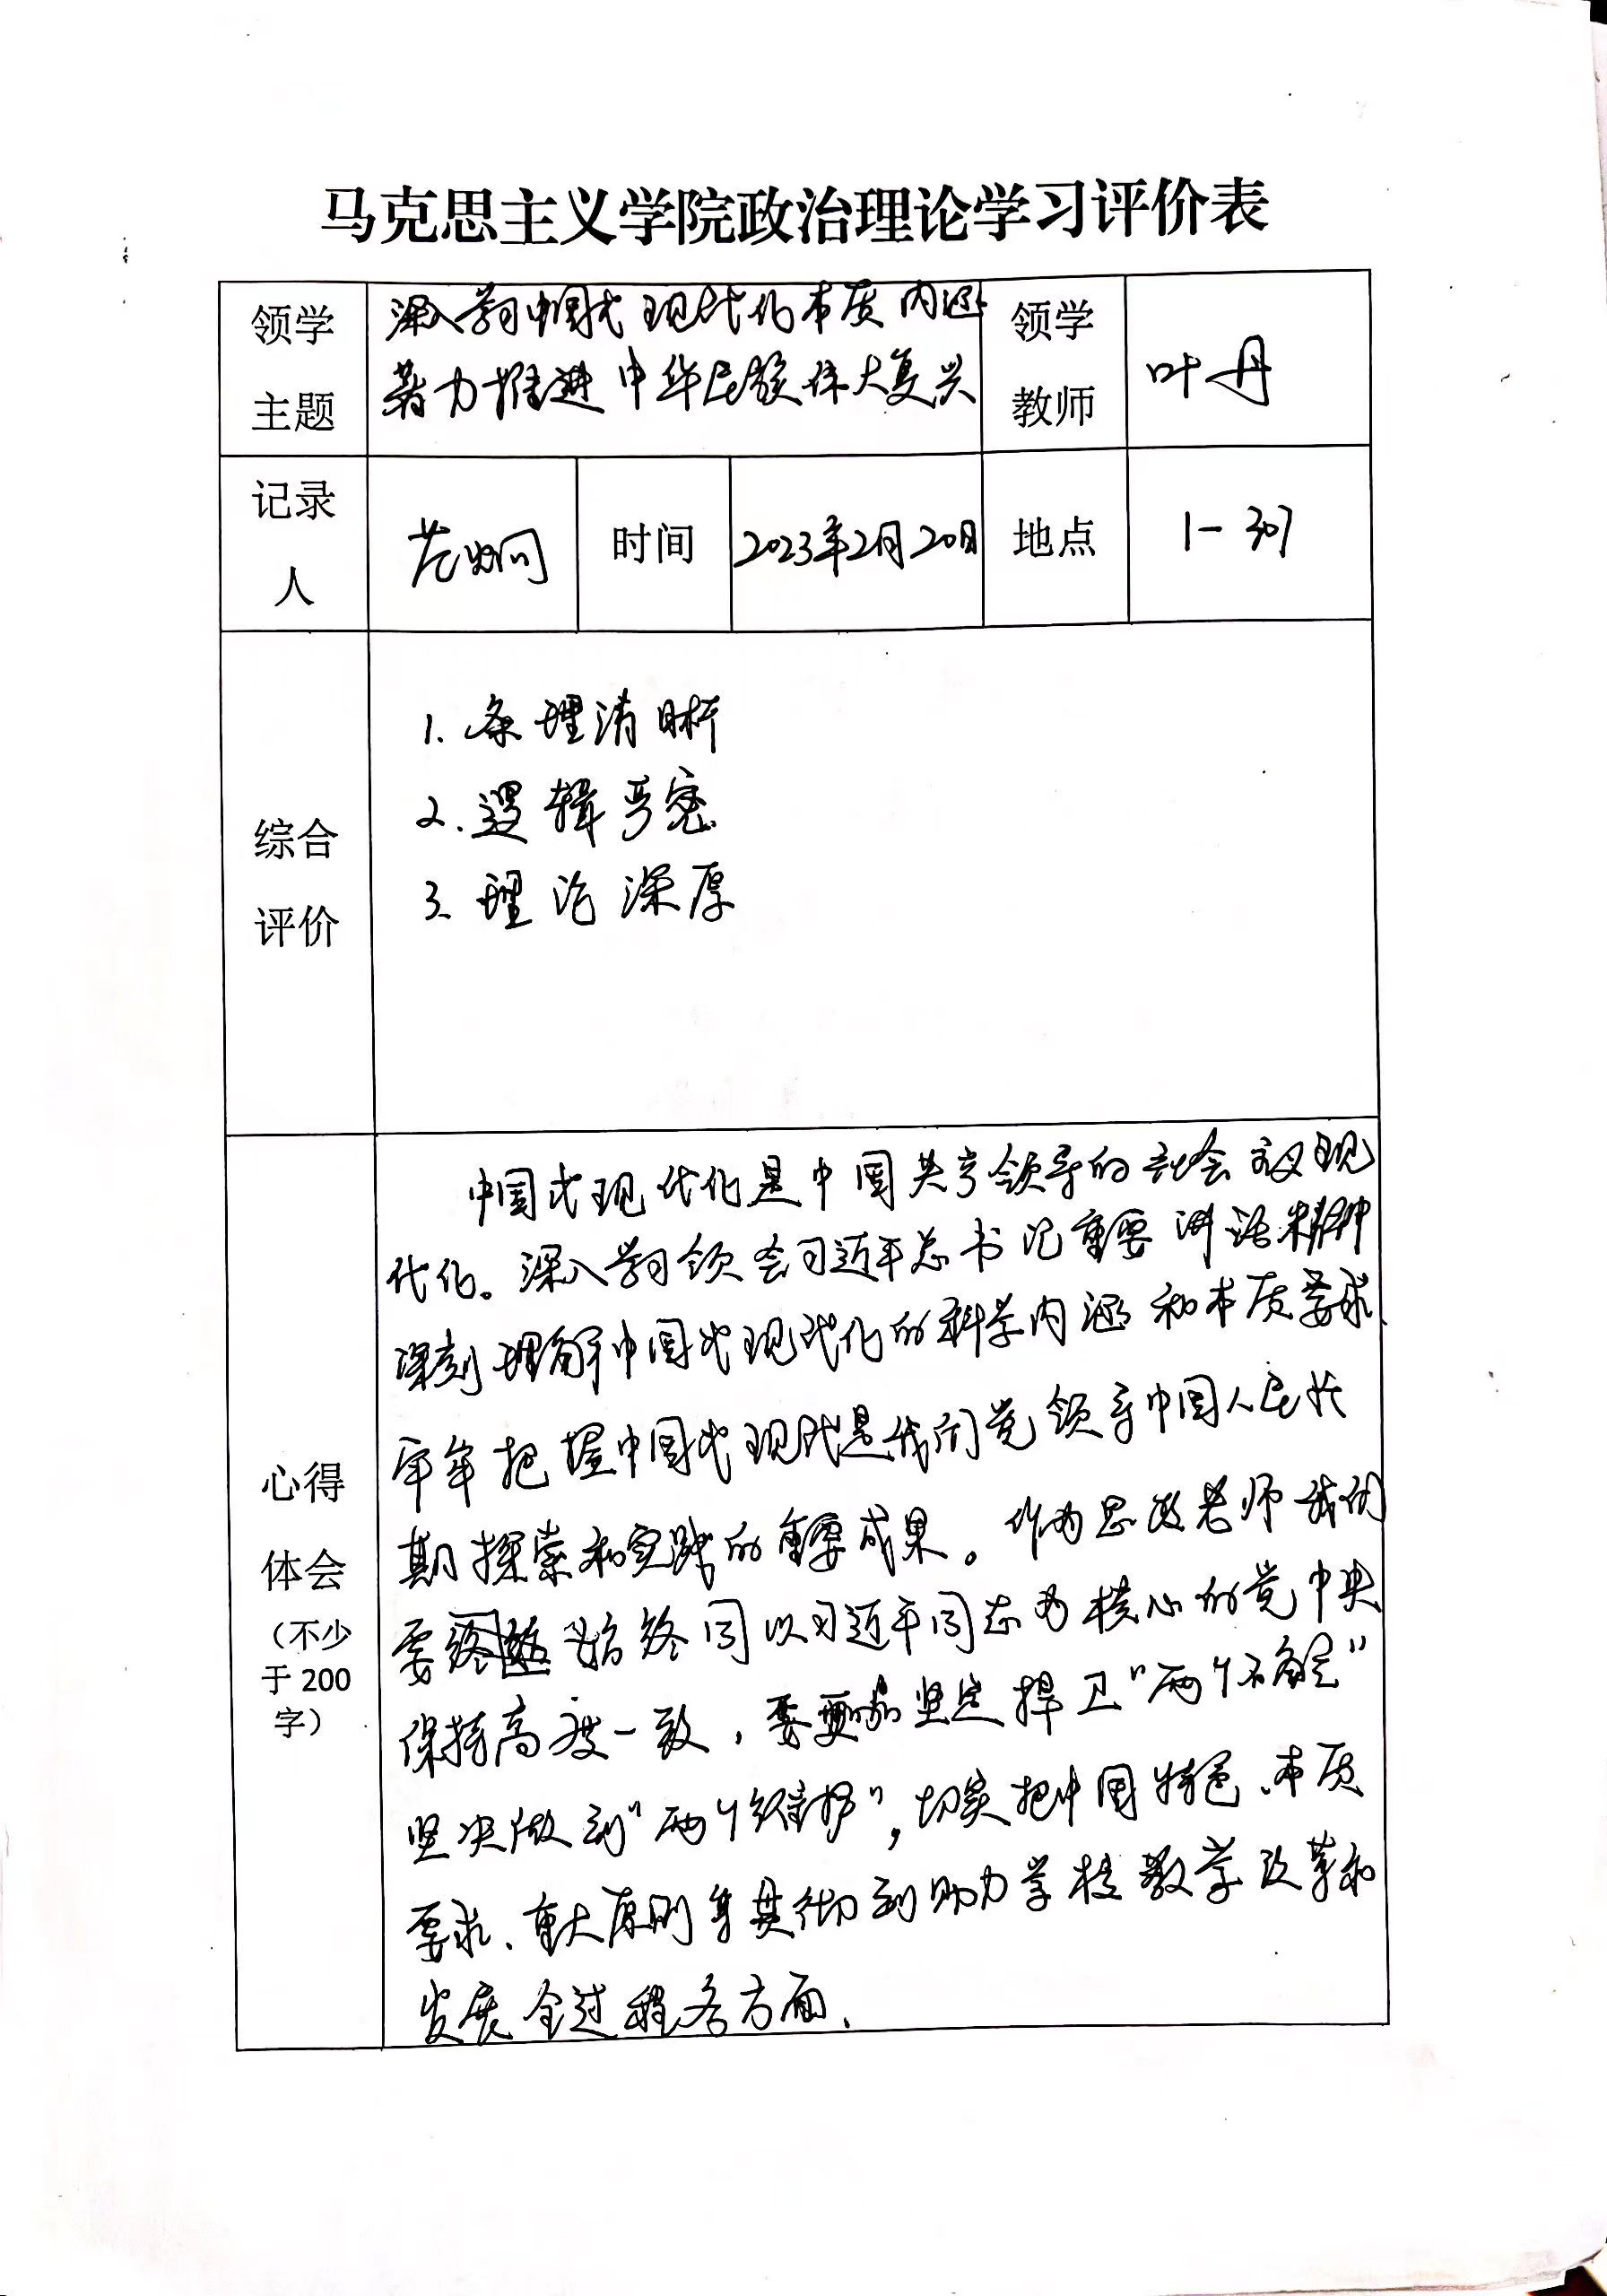 马克思主义学院政治理论学习评价表
领学主题 深入学习中国式现代化本质内涵 领学教师 叶丹
着力推进中华民族伟大复兴
记录人 时间 2023年2月20日 地点 1-307
综合评价
1. 条理清晰
2. 逻辑严密
3. 理论深厚
心得体会(不少于200字)
中国式现代化是中国共产党领导的社会主义现
代化。深入学习领会习近平总书记重要讲话精神
深刻理解中国式现代化的科学内涵和本质要求、
牢牢把握中国式现代是我们党领导中国人民长
期探索和实践的重要成果。作为思政老师我们
要 始终同以习近平同志为核心的党中央
保持高度一致,要更加坚定捍卫“两个确定”
坚决做到“两个维护”,切实把中国特色、本质
要求、重大原则 贯彻到助力学校教学改革和
发展全过程各方面、